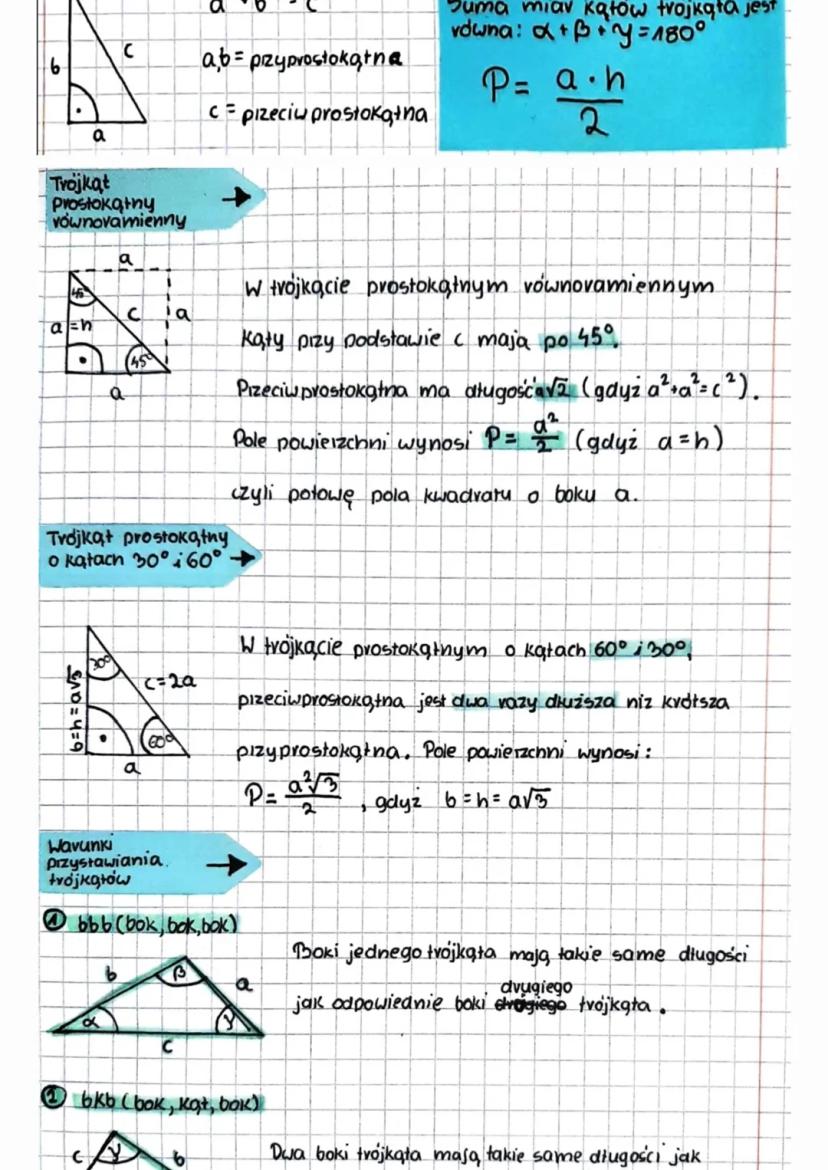 Suma miar kątów trójkąta jest
równa: α+β+γ=180°
b
c
a
a,b = przyprostokątna
c = przeciwprostokątna
P= a·h/2
Trójkąt
prostokątny
równoramienny →
a
45°
a=h
c
a
45°
a
W trójkącie prostokątnym równoramiennym
kąty przy podstawie c mają po 45°.
Przeciwprostokątna ma długość a√2 (gdyż a²+a²=c²).
Pole powierzchni wynosi P= a²/2 (gdyż a=h)
czyli połowę pola kwadratu o boku a.
Trójkąt prostokątny
o kątach 30° i 60° →
30°
b=h=a√3
c=2a
60°
a
W trójkącie prostokątnym o kątach 60° i 30°,
przeciwprostokątna jest dwa razy dłuższa niż krótsza
przyprostokątna. Pole powierzchni wynosi:
P= a²√3/2 , gdyż b=h=a√3
Warunki
przystawiania
trójkątów →
1 bbb (bok, bok, bok)
b
β
a
α
γ
c
Boki jednego trójkąta mają takie same długości
jak odpowiednie boki drugiego trójkąta.
2 bkb (bok, kąt, bok)
c
γ
b
Dwa boki trójkąta mają takie same długości jak